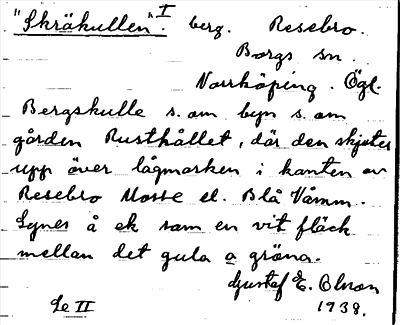 "Skräkullen". I berg. Resebro.
Borgs sn.
Norrköping. Ögl.
Bergskulle s. om byn s. om
gården Rusthållet, där den skjuter
upp över lågmarken i kanten av
Resebro Mosse el. Blå Våmm.
Synes å ek som en vit fläck
mellan det gula o gröna.
Gustaf E. Olson
1938.
Le II